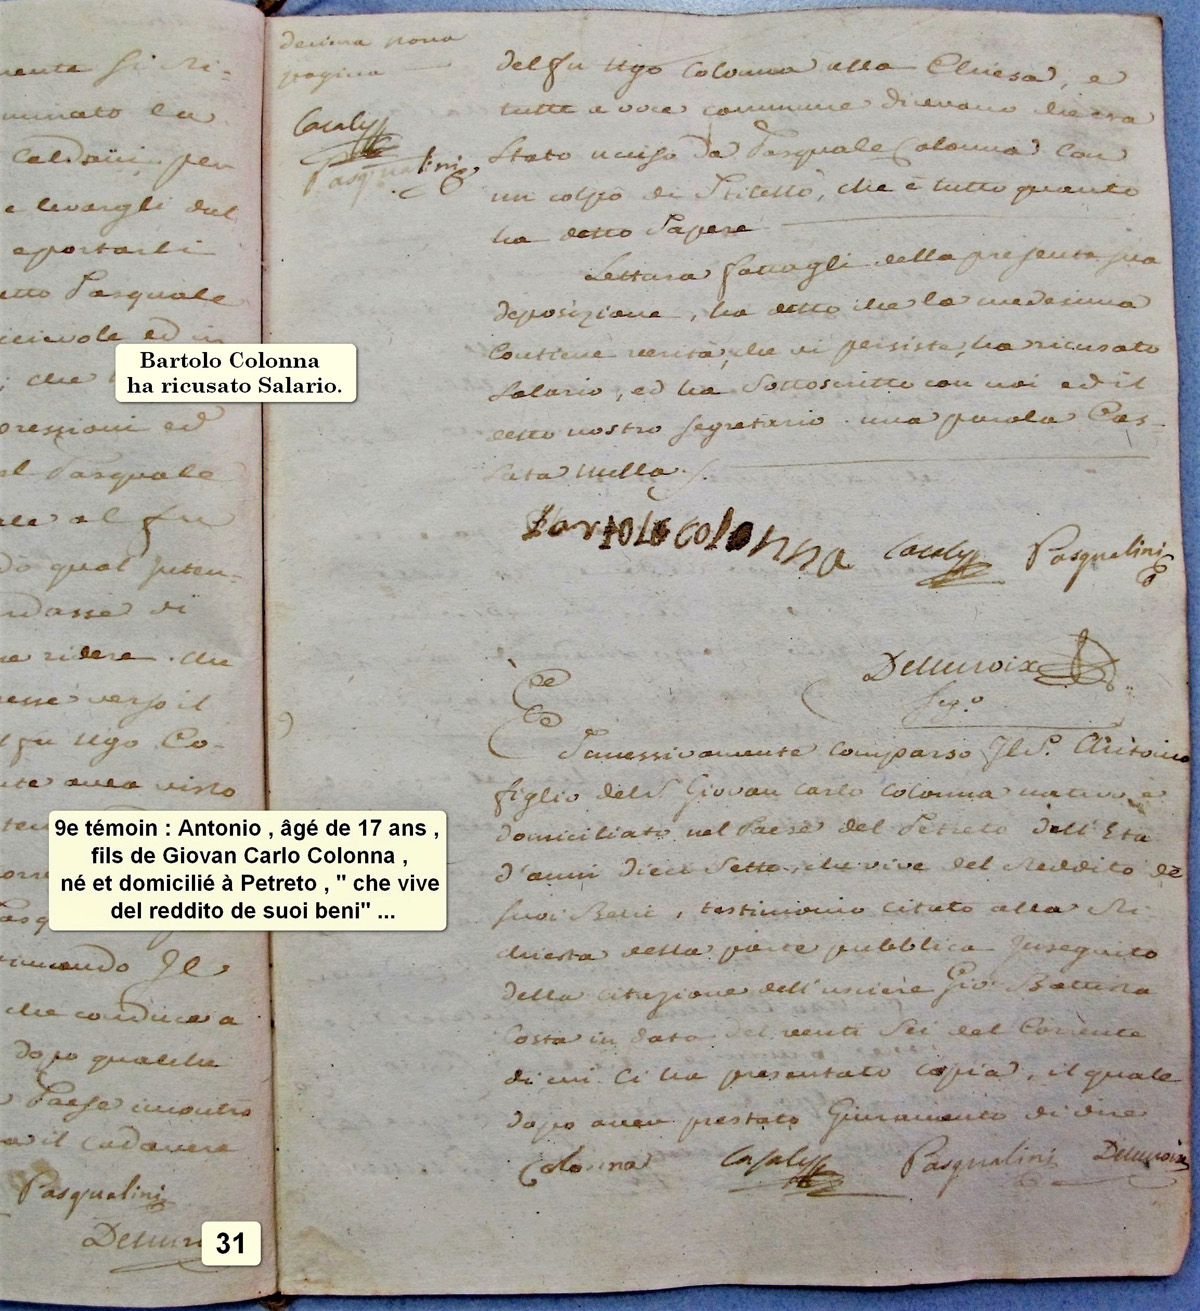 mente si ri=
minato la
Caldani, per
e levargli dal
e portarli
etto Pasquale
ed in
che
pressioni ed
el Pasquale
ale al fu
do qual inten-
ndasse di
ridere che
esse verso il
l fu Ugo Co-
nte avea visto
rimando Il
che conduce a
dopo qualche
Paese incontro
a il cadavere
Pasqualini
31
Bartolo Colonna
ha ricusato Salario.
9e témoin : Antonio , âgé de 17 ans ,
fils de Giovan Carlo Colonna ,
né et domicilié à Petreto , " che vive
del reddito de suoi beni" ...
decima nona
pagina
Casalta
Pasqualini
del fu Ugo Colonna alla Chiesa, e
tutti a voce commune dicevano che era
Stato ucciso da Pasquale Colonna con
un colpo di Stiletto, che è tutto quanto
ha detto Sapere
Lettura fattagli della presente sua
deposizione, ha detto che la medesima
Contiene verità, che vi persiste, ha ricusato
Salario, ed ha Sottoscritto con noi ed il
detto nostro Segretario una parola Cas-
sata nulla.
Bartolo colonna Pasqualini
Segº
Successivamente comparso Il Sr. Antonio
figlio del Sr. Giovan Carlo Colonna nativo e
domiciliato nel Paese del Petreto dell'Età
d'anni dieci Sette, che vive del Reddito de
Suoi Beni, testimonio citato alla Ri-
chiesta della parte pubblica Inseguito
della citazione dell'usciere Gio: Battista
Costa in data del venti Sei del Corrente
di cui Ci ha presentato Copia, il quale
dopo aver prestato Giuramento di dire
Colonna Pasqualini